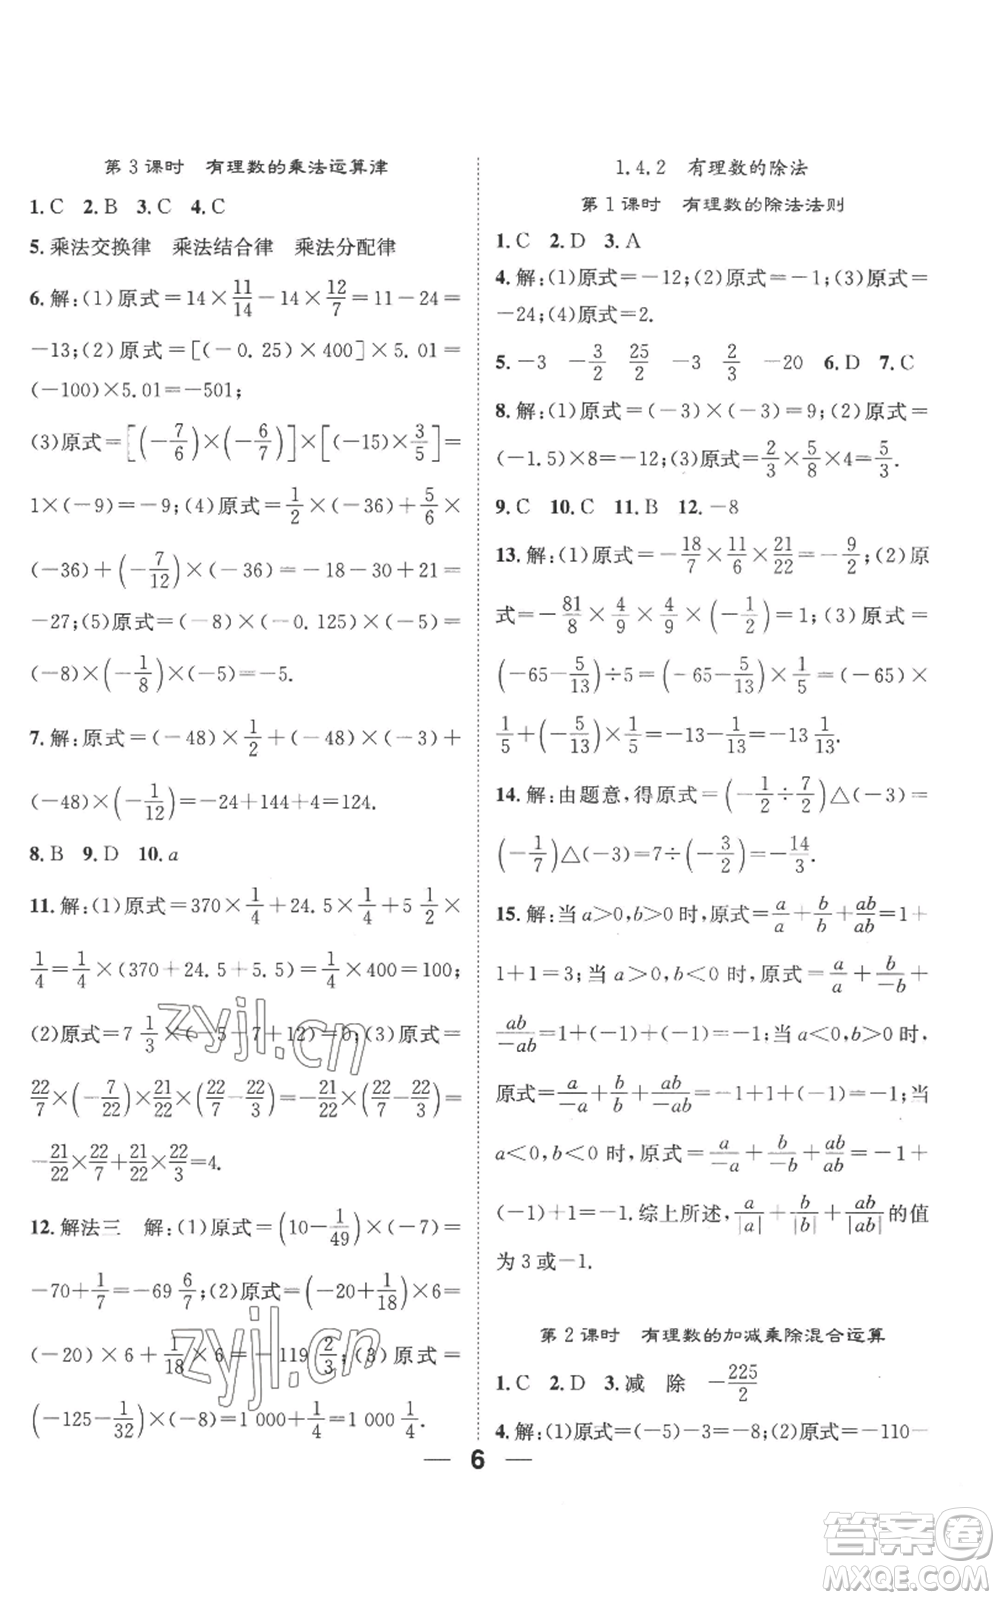 第 3 课时　有理数的乘法运算律
1. C　2. B　3. C　4. C
5. 乘法交换律　乘法结合律　乘法分配律
6. 解:(1)原式=14×11/14-14×12/7=11-24=
-13;(2)原式=[(-0.25)×400]×5.01=
(-100)×5.01=-501;
(3)原式=[(-7/6)×(-6/7)]×[(-15)×3/5]=
1×(-9)=-9;(4)原式=1/2×(-36)+5/6×
(-36)+(-7/12)×(-36)=-18-30+21=
-27;(5)原式=(-8)×(-0.125)×(-5)=
(-8)×(-1/8)×(-5)=-5.
7. 解:原式=(-48)×1/2+(-48)×(-3)+
(-48)×(-1/12)=-24+144+4=124.
8. B　9. D　10. a
11. 解:(1)原式=370×1/4+24.5×1/4+5 1/2×
1/4=1/4×(370+24.5+5.5)=1/4×400=100;
(2)原式=7 1/3×(-5-7+12)=0;(3)原式=
22/7×(-7/22)×21/22×(22/7-22/3)=-21/22×(22/7-22/3)=
-21/22×22/7+21/22×22/3=4.
12. 解法三　解:(1)原式=(10-1/49)×(-7)=
-70+1/7=-69 6/7;(2)原式=(-20+1/18)×6=
(-20)×6+1/18×6=-119 2/3;(3)原式=
(-125-1/32)×(-8)=1 000+1/4=1 000 1/4.
1.4.2　有理数的除法
第 1 课时　有理数的除法法则
1. C　2. D　3. A
4. 解:(1)原式=-12;(2)原式=-1;(3)原式=
-24;(4)原式=2.
5. -3　-3/2　25/2　-3　2/3　-20　6. D　7. C
8. 解:(1)原式=(-3)×(-3)=9;(2)原式=
(-1.5)×8=-12;(3)原式=2/3×5/8×4=5/3.
9. C　10. C　11. B　12. -8
13. 解:(1)原式=-18/7×11/6×21/22=-9/2;(2)原
式=-81/8×4/9×4/9×(-1/2)=1;(3)原式=
(-65-5/13)÷5=(-65-5/13)×1/5=(-65)×
1/5+(-5/13)×1/5=-13-1/13=-13 1/13.
14. 解:由题意,得原式=(-1/2÷7/2)△(-3)=
(-1/7)△(-3)=7÷(-3/2)=-14/3.
15. 解:当 a>0,b>0 时,原式=a/a+b/b+ab/ab=1+
1+1=3;当 a>0,b<0 时,原式=a/a+b/-b+
ab/-ab=1+(-1)+(-1)=-1;当 a<0,b>0 时,
原式=a/-a+b/b+ab/-ab=-1+1+(-1)=-1;当
a<0,b<0 时,原式=a/-a+b/-b+ab/ab=-1+
(-1)+1=-1.综上所述,a/|a|+b/|b|+ab/|ab|的值
为 3 或-1.
第 2 课时　有理数的加减乘除混合运算
1. C　2. D　3. 减　除　-225/2
4. 解:(1)原式=(-5)-3=-8;(2)原式=-110-
— 6 —
zyjl.cn
zyjl.cn
答案卷
MXQE.COM